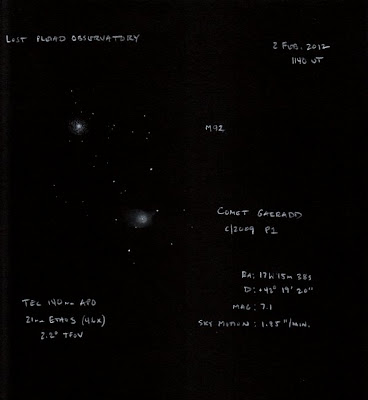 LOST PLEIAD OBSERVATORY
2 FEB. 2012
1140 UT
M92
COMET GARRADD
C/2009 P1
RA: 17h 15m 38s
D: +42° 19' 20"
MAG: 7.1
SKY MOTION: 1.85"/MIN.
TEC 140mm APO
21mm ETHOS (46X)
2.2° TFOV